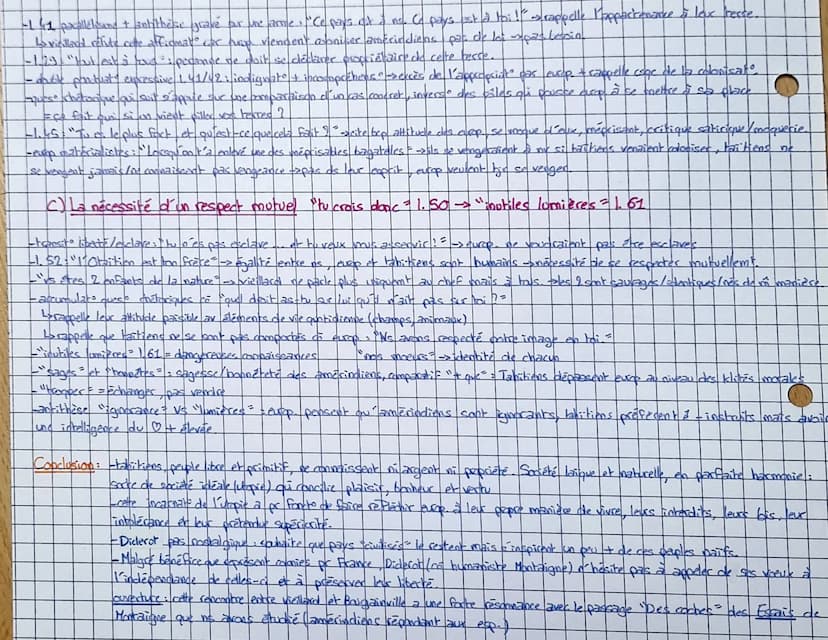 -l.41 parallélisme + antithèse gravé par une arme : "Ce pays est à ns. Ce pays est à toi !" → rappelle l'appartenance à leur terre.
↳ vieillard réfute cette affirmat° car europ viennent coloniser amérindiens
"tout est à tous" : personne ne doit se déclarer propriétaire de cette terre.
-double ponctuat° expressive l.41/42 : indignat°
→ excès de l'appropriat° par europ + rappelle
de la colonisat°
quest° rhétorique qui suit s'appuie sur une comparaison d'un cas concret, inverse° des pôles qui pousse europ à se mettre à sa place
= ça fait quoi si on vient piller vos terres ?
-l.45 : "Tu es le plus fort, et qu'est-ce que cela fait ?" → cite bcp attitude des europ, se moque d'eux, méprisant, critique satirique/moquerie
-europ matérialistes : "Lorsqu'on t'a enlevé une des méprisables bagatelles" → ils se vengeraient à mr si tahitiens venaient coloniser, tahitiens ne
se vengent jamais/ne connaissent pas vengeance → pas de leur esprit, europ veulent tjs se venger
C) La nécessité d'un respect mutuel "tu crois donc" l.50 → "inutiles lumières" l.61
liberté/esclave : "tu n'es pas esclave ... et tu veux nous asservir !" → europ. ne voudraient pas être esclaves
-l.52 : "l'Otaïtien est ton frère" → égalité entre ns, europ et tahitiens sont humains → nécessité de se respecter mutuellemt.
-"vs êtes 2 enfants de la nature" → vieillard ne parle plus uniquement au chef mais à tous. les 2 sont sauvages/identiques/nés de la m̂ manière.
-accumulat° quest° rhétoriques "quel droit as-tu sur lui qu'il n'ait pas sur toi ?"
↳ rappelle leur attitude paisible av éléments de vie quotidienne (champs, animaux)
↳ rappelle que tahitiens ne se sont pas comportés cô europ : "Ns avons respecté notre image en toi."
-"inutiles lumières" l.61 = dangereuses connaissances "nos moeurs" → identité de chacun
-"sages" et "honnêtes" : sagesse/honnêteté des amérindiens, comparatif "+ que" : Tahitiens dépassent europ au niveau des qlités morales
-"troquer" = échanger, pas vendre
-antithèse "ignorance" vs "lumières" : europ. pensent qu'amérindiens sont ignorants, tahitiens préfèrent ê - instruits mais avoir
une intelligence du ♡ + élevée.
Conclusion : -tahitiens, peuple libre et primitif, ne connaissent ni argent ni propriété. Société laïque et naturelle, en parfaite harmonie :
sorte de société idéale (utopie) qui concilie plaisir, bonheur et vertu
-cette incarnat° de l'utopie à pr fonct° de faire réfléchir europ à leur propre manière de vivre, leurs interdits, leurs lois, leur
intolérance et leur prétendue supériorité.
-Diderot pas nostalgique : souhaite que pays "civilisés" le restent mais s'inspirent un peu + de ces peuples naïfs.
-Malgré bénéfice que représent colonies pr France, Diderot (cô humaniste Montaigne) n'hésite pas à appeler de ses voeux à
l'indépendance de celles-ci et à préserver leur liberté.
ouverture : cette rencontre entre vieillard et Bougainville a une forte résonnance avec le passage "Des coches" des Essais de
Montaigne que ns avons étudié (amérindiens répondant aux esp.)